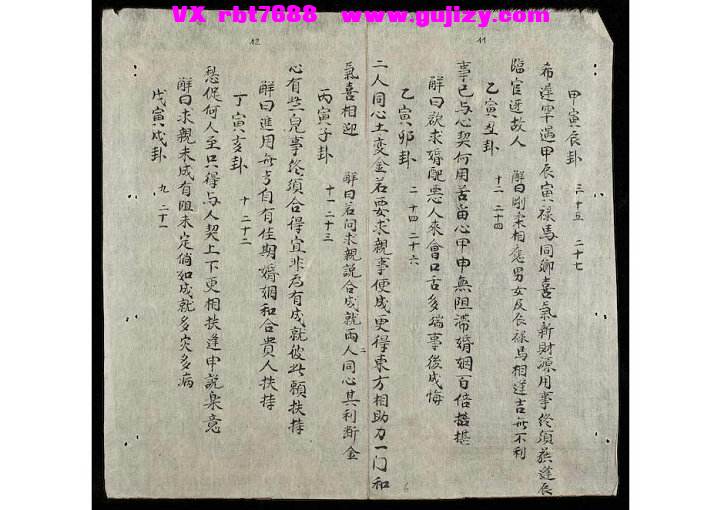 VX rbt7688 www.gujizy.com
11
甲寅辰卦 三十五 二十七
希逢零遇甲辰寅祿馬同鄉喜氣新財源用事終須 逢辰
臨官逆故人 解曰剛柔相應男女及辰祿馬相逢吉無不利
乙寅丑卦 十二 二十四
事已与心契何用苦留心甲申無阻滯婚姻百倍
解曰欲求婚配惡人來會口舌多端事後成悔
乙寅卯卦 二十四 二十六
二人同心土变金若要求親事便成更得東方相助力一门和
12
氣喜相迎 解曰若问求親説合成就兩人同心其利断金
丙寅子卦 十一 二十三
心有些兒事終須合得宜非为有成就彼此頼扶持
解曰進用無亏自有佳期婚姻和合貴人扶持
丁寅亥卦 十 二十二
愁促何人至只得与人契上下更相扶逢申説樂意
解曰求親未成有阻未定倘如成就多灾多病
戊寅戌卦 九 二十一